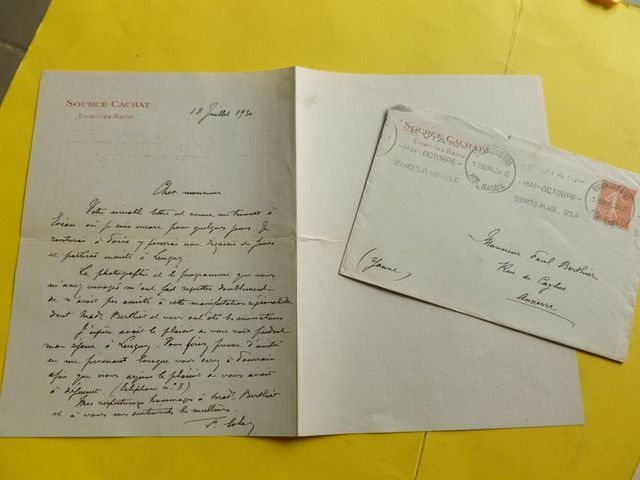 SOURCE CACHAT
Evian-les-Bains
18 Juillet 1930
Cher monsieur
Votre aimable lettre est venue me trouver à
Evian où je suis encore pour quelques jours. Je
rentrerai à Paris y passerai une dizaine de jours
et partirai ensuite à
La photographie et le programme que vous
m'avez envoyés m'ont fait regretter doublement
de n'avoir pas assisté à cette manifestation régionaliste
dont Madᵉ Berthier et vous avez été les animateurs
J'espère avoir le plaisir de vous voir pendant
mon séjour à
en me prévenant lorsque vous à
afin que nous ayons le plaisir de vous avoir
à déjeuner (téléphone nº 3)
Mes respectueux hommages à Madᵉ Berthier
et à vous mes sentiments les meilleurs.
SOURCE CACHAT
Evian-les-Bains
EVIAN
-MAI-OCTOBRE-
SOURCES-PLAGE-GOLF
Hᵗᵉ SAVOIE
-EVIAN-
-MAI-OCTOBRE-
SOURCES-PLAGE-GOLF
Monsieur Paul Berthier
Rue de Caylus
Auxerre
(Yonne)